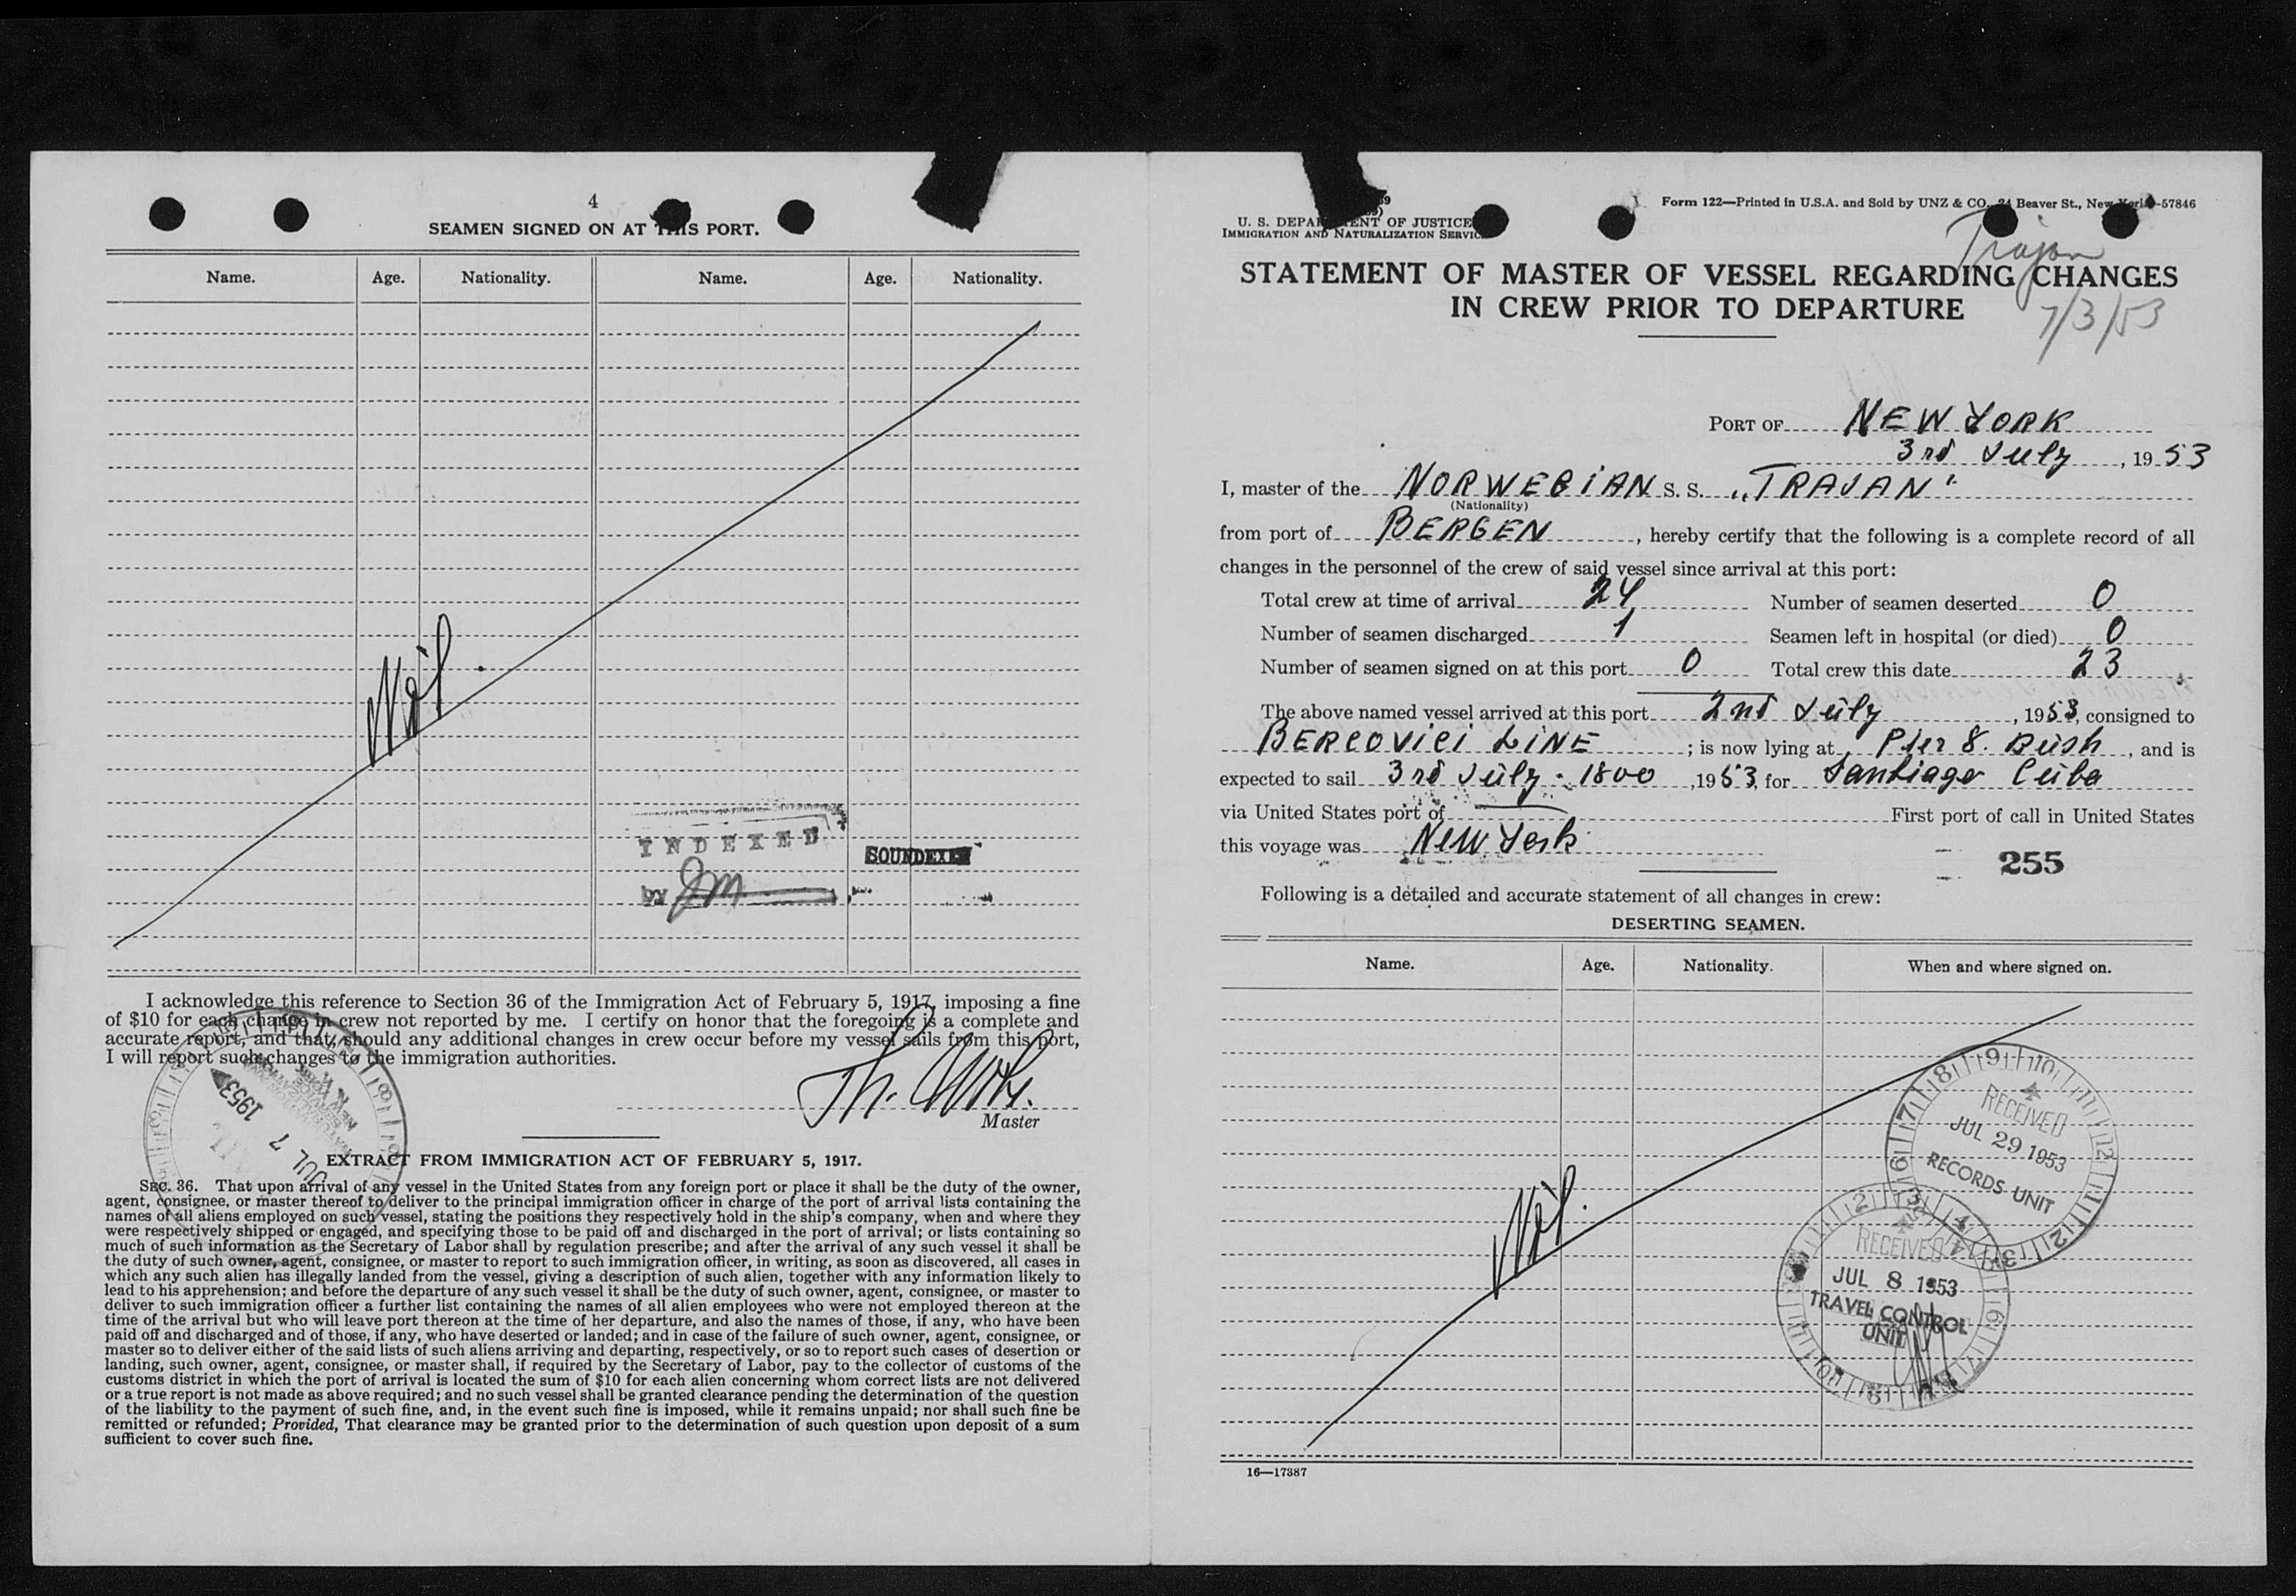 4
SEAMEN SIGNED ON AT THIS PORT.
Name. Age. Nationality. Name. Age. Nationality.
Nil.
INDEXED
SOUNDEXED
by JM
I acknowledge this reference to Section 36 of the Immigration Act of February 5, 1917, imposing a fine
of $10 for each change in crew not reported by me. I certify on honor that the foregoing is a complete and
accurate report, and that, should any additional changes in crew occur before my vessel sails from this port,
I will report such changes to the immigration authorities.
Th.
Master
JUL 7 1953
EXTRACT FROM IMMIGRATION ACT OF FEBRUARY 5, 1917.
SEC. 36. That upon arrival of any vessel in the United States from any foreign port or place it shall be the duty of the owner,
agent, consignee, or master thereof to deliver to the principal immigration officer in charge of the port of arrival lists containing the
names of all aliens employed on such vessel, stating the positions they respectively hold in the ship's company, when and where they
were respectively shipped or engaged, and specifying those to be paid off and discharged in the port of arrival; or lists containing so
much of such information as the Secretary of Labor shall by regulation prescribe; and after the arrival of any such vessel it shall be
the duty of such owner, agent, consignee, or master to report to such immigration officer, in writing, as soon as discovered, all cases in
which any such alien has illegally landed from the vessel, giving a description of such alien, together with any information likely to
lead to his apprehension; and before the departure of any such vessel it shall be the duty of such owner, agent, consignee, or master to
deliver to such immigration officer a further list containing the names of all alien employees who were not employed thereon at the
time of the arrival but who will leave port thereon at the time of her departure, and also the names of those, if any, who have been
paid off and discharged and of those, if any, who have deserted or landed; and in case of the failure of such owner, agent, consignee, or
master so to deliver either of the said lists of such aliens arriving and departing, respectively, or so to report such cases of desertion or
landing, such owner, agent, consignee, or master shall, if required by the Secretary of Labor, pay to the collector of customs of the
customs district in which the port of arrival is located the sum of $10 for each alien concerning whom correct lists are not delivered
or a true report is not made as above required; and no such vessel shall be granted clearance pending the determination of the question
of the liability to the payment of such fine, and, in the event such fine is imposed, while it remains unpaid; nor shall such fine be
remitted or refunded; Provided, That clearance may be granted prior to the determination of such question upon deposit of a sum
sufficient to cover such fine.
Form 122—Printed in U.S.A. and Sold by UNZ & CO., 24 Beaver St., New York—57846
U. S. DEPARTMENT OF JUSTICE
IMMIGRATION AND NATURALIZATION SERVICE
Trajan
STATEMENT OF MASTER OF VESSEL REGARDING CHANGES
IN CREW PRIOR TO DEPARTURE
7/3/53
PORT OF NEW YORK
3rd July, 1953
I, master of the NORWEGIAN S. S. "TRAJAN"
(Nationality)
from port of BERGEN, hereby certify that the following is a complete record of all
changes in the personnel of the crew of said vessel since arrival at this port:
Total crew at time of arrival 24 Number of seamen deserted 0
Number of seamen discharged 1 Seamen left in hospital (or died) 0
Number of seamen signed on at this port 0 Total crew this date 23
The above named vessel arrived at this port 2nd July, 1953, consigned to
BERCOVICI LINE; is now lying at Pier 8. Bush, and is
expected to sail 3rd July - 1800, 1953, for Santiago Cuba
via United States port of First port of call in United States
this voyage was New York
255
Following is a detailed and accurate statement of all changes in crew:
DESERTING SEAMEN.
Name. Age. Nationality. When and where signed on.
Nil.
RECEIVED
JUL 29 1953
RECORDS UNIT
RECEIVED
JUL 8 1953
TRAVEL CONTROL
UNIT
16—17387